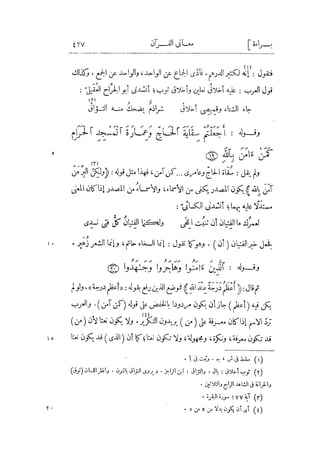 براءة] معانى القرآن ٤٢٧
فتقول : إنه لكثير الدرهم، فأدّى الجماع عن الواحد، والواحد عن الجمع. وكذلك
قول العرب : عليه أخلاق نعلين وأخلاق ثوب؛ أنشدنى أبو الجرّاح العُقَيلىّ :
جاء الشتاء وقميصى أخلاق شراذمٌ يضحك منه التوّاق
وقـوله : أَجَعَلْتُمْ سِقَايَةَ الْحَاجِّ وَعِمَارَةَ الْمَسْجِدِ الْحَرَامِ
٥
كَمَنْ ءَامَنَ بِاللَّهِ ﴿١٩﴾
ولم يقل : سُقاة الحاجّ وعامرى... كمن آمن، فهذا مثل قوله : ﴿ولكنّ البِرَّ مَنْ
آمن بالله﴾ يكون المصدر يكفى من الأسماء، والأسماء من المصدر إذا كان المعنى
مستدَلّا عليه بهما؛ أنشدنى الكسائىّ :
لعمرك ما الفِتيان أن تنبُت اللحَى ولكنّما الفِتيان كلُّ فتى ندِى
فجعل خبر الفتيان (أن). وهو كما تقول : إنما السخاء حاتم، وإنما الشعر زُهَير. ١٠
وقـوله : الَّذِينَ ءَامَنُوا وَهَاجَرُوا وَجَٰهَدُوا ﴿٢٠﴾
ثم قال : ﴿أعظمُ درجةً عند الله﴾ فموضع الذين رفع بقوله : «أعظم درجة». ولو لم
يكن فيه (أعظم) جاز أن يكون مردودا بالخفض على قوله (كمن آمن). والعرب
تردّ الاسم إذا كان معرفة على (من) يريدون التكرير. ولا يكون نعتا لأن (من)
قد تكون معرفة، ونكرة، ومجهولة، ولا تكون نعتا؛ كما أن (الذى) قد يكون نعتا ١٥
(١) سقط فى ش، ج. وثبت فى أ.
(٢) ثوب أخلاق : بال. والتوّاق : ابن الراجز. ويروى النوّاق بالنون. وانظر اللسان (توق)
والخزانة فى الشاهد الرابع والثلاثين.
(٣) آية ١٧٧ سورة البقرة.
(٤) أى أن يكون بدلا من «من». ٢٠